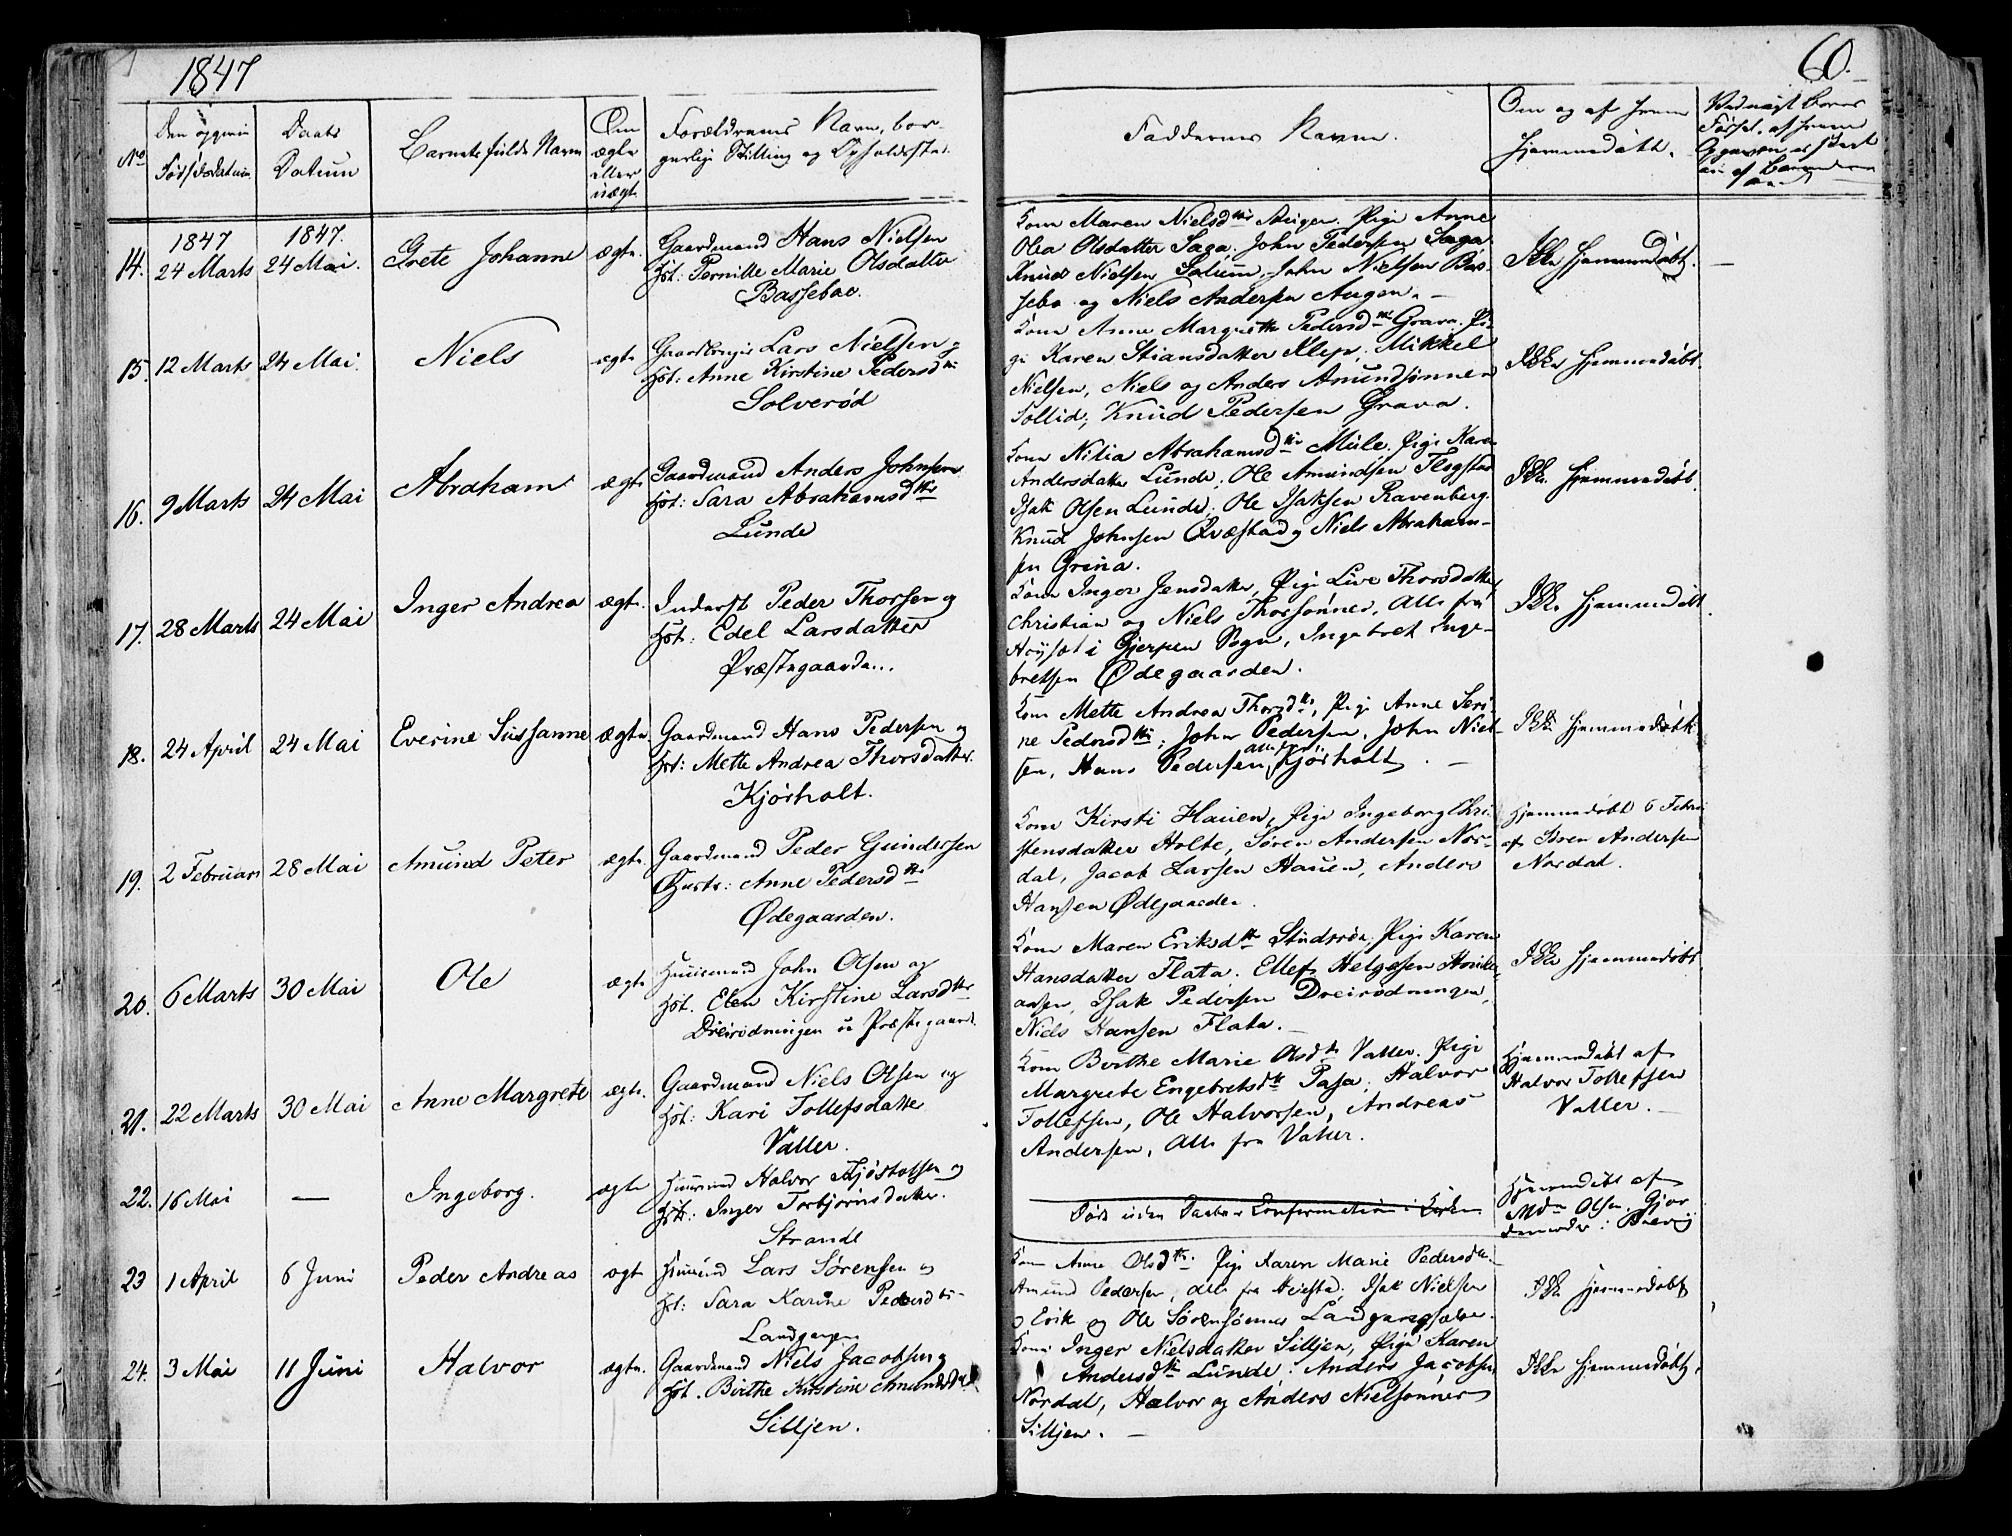 1847
60.
No
Den opgivne
Fødselsdatum
Daabs
Datum
Barnets fulde Navn
Om
ægte
eller
uægte
Forældrenes Navn, bor-
gerlige Stilling og Opholdssted.
Faddernes Navne.
Om og af hvem
hjemmedøbt.
14.
1847
24 Marts
1847.
24 Mai.
Grete Johanne
ægte.
Gaardmand Hans Nielsen
Hst: Pernille Marie Olsdatter
Basseboe.
Kone Maren Nielsdtr Pige Anne
Olea Olsdatter Saga. John Pedersen Saga
Knud Nielsen John Nielsen Bas-
sebo og Niels Andersen Augen. –
Ikke hjemmedøbt.
—
15.
12 Marts
24 Mai.
Niels
ægte
Gaardbruger Lars Nielsen og
Hst: Anne Kirstine Pedersdtr
Solverød
Kone Anne Margrethe Pedersdtr Grava. Pi-
ge Karen Stiansdatter Klep. Mikkel
Nielsen, Niels og Anders Amundsønner
Sollid, Knud Pedersen Grava.
Ikke hjemmedøbt.
16.
9 Marts
24 Mai
Abraham
ægte
Gaardmand Anders Johnsen
Hst: Sara Abrahamsdtr
Lunde
Kone Nilia Abrahamsdtr Mule. Pige Karen
Andersdatter Lunde, Ole Amundsen Flogstad
Isak Olsen Lunde, Ole Isaksen Ravenberg.
Knud Johnsen Qvæstad og Niels Abraham-
sen Grina.
Ikke hjemmedøbt.
17.
28 Marts
24 Mai
Inger Andrea
ægte.
Inderst Peder Thorsen og
Hst: Edel Larsdatter
Præstegaarden.
Kone Inger Jensdatter, Pige Live Thorsdatter
Christian og Niels Thorsønner, Alle fra
i Gjerpen Sogn, Ingebret Inge-
bretsen Ødegaarden.
Ikke hjemmedøbt.
18.
24 April
24 Mai
Everine Sussanne
ægte
Gaardmand Hans Pedersen og
Hst: Mette Andrea Thorsdatter.
Kjørholt.
Kone Mette Andrea Thorsdtr, Pige Anne Seri-
ne Pedersdtr; John Pedersen, John Niel-
sen, Hans Pedersen, alle fra Kjørholt. –
Ikke hjemmedøbt.
19.
2 Februar
28 Mai
Amund Peter
ægte.
Gaardmand Peder Gundersen
Hustr: Anne Pedersdtr
Ødegaarden.
Kone Kirsti Hauen, Pige Ingeborg Chri-
stensdatter Holte, Søren Andersen Nor-
dal, Jacob Larsen Hauen, Anders
Hansen Ødegaarden.
Hjemmedøbt 6 Febru
af Søren Andersen
Nordal.
20.
6 Marts
30 Mai
Ole
ægte
Huusmand John Olsen og
Hst. Elen Kirstine Larsdtr
Dreirødningen u Præstegaard.
Kone Maren Eriksdtr Studsrøe, Pige Karen
Hansdatter Flata. Ellef Helgesen
aasen, Isak Pedersen Dreirødningen,
Niels Hansen Flata. –
Ikke hjemmedøbt.
21.
22 Marts
30 Mai
Anne Margrete
ægte.
Gaardmand Niels Olsen og
Hst: Kari Tollefsdatter
Valler.
Kone Birthe Marie Olsdtr Valler. Pige
Margrete Engebretsdtr Pasa, Halvor
Tollefsen, Ole Halvorsen, Andreas
Andersen, Alle fra Valler.
Hjemmedøbt af
Halvor Tollefsen
Valler. –
22.
16 Mai
—
Ingeborg.
ægte
Huusmand Halvor Kjøstolsen og
Hst: Inger Torbjørnsdatter.
Strande
Død uden Daabens Confirmation i Kirken
Hjemmedøbt af
Mdm Olsen. Gjor
demoder i Brevig
23
1 April
6 Juni
Peder Andreas
ægte
Huusmand Lars Sørensen og
Hst: Sara Karine Pedersdtr
Landgangen
Kone Anne Olsdtr. Pige Karen Marie Pedersdtr.
Amund Pedersen, alle fra Isak Nielsen
og Erik og Ole Sørensønner
Ikke hjemmedøbt
24.
3 Mai
11 Juni
Halvor
ægte.
Gaardmand Niels Jacobsen og
Hst. Birthe Kirstine Amundsdtr
Silljen.
Kone Inger Nielsdatter Silljen, Pige Karen
Andersdtr Lunde. Anders Jacobsen
Nordal, Halvor og Anders Nielsønner
Silljen. –
Ikke hjemmedøbt.